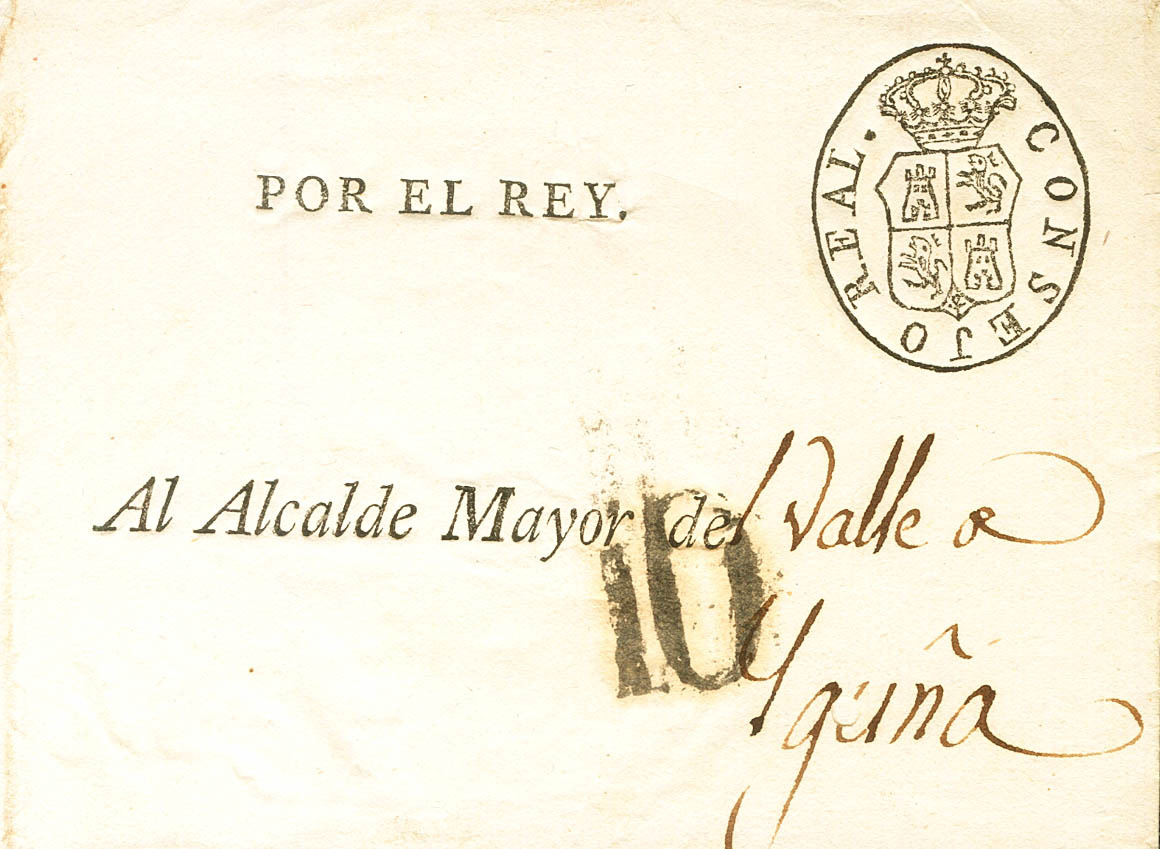 POR EL REY.
REAL. CONSEJO
Al Alcalde Mayor del Valle de
Yguña
10